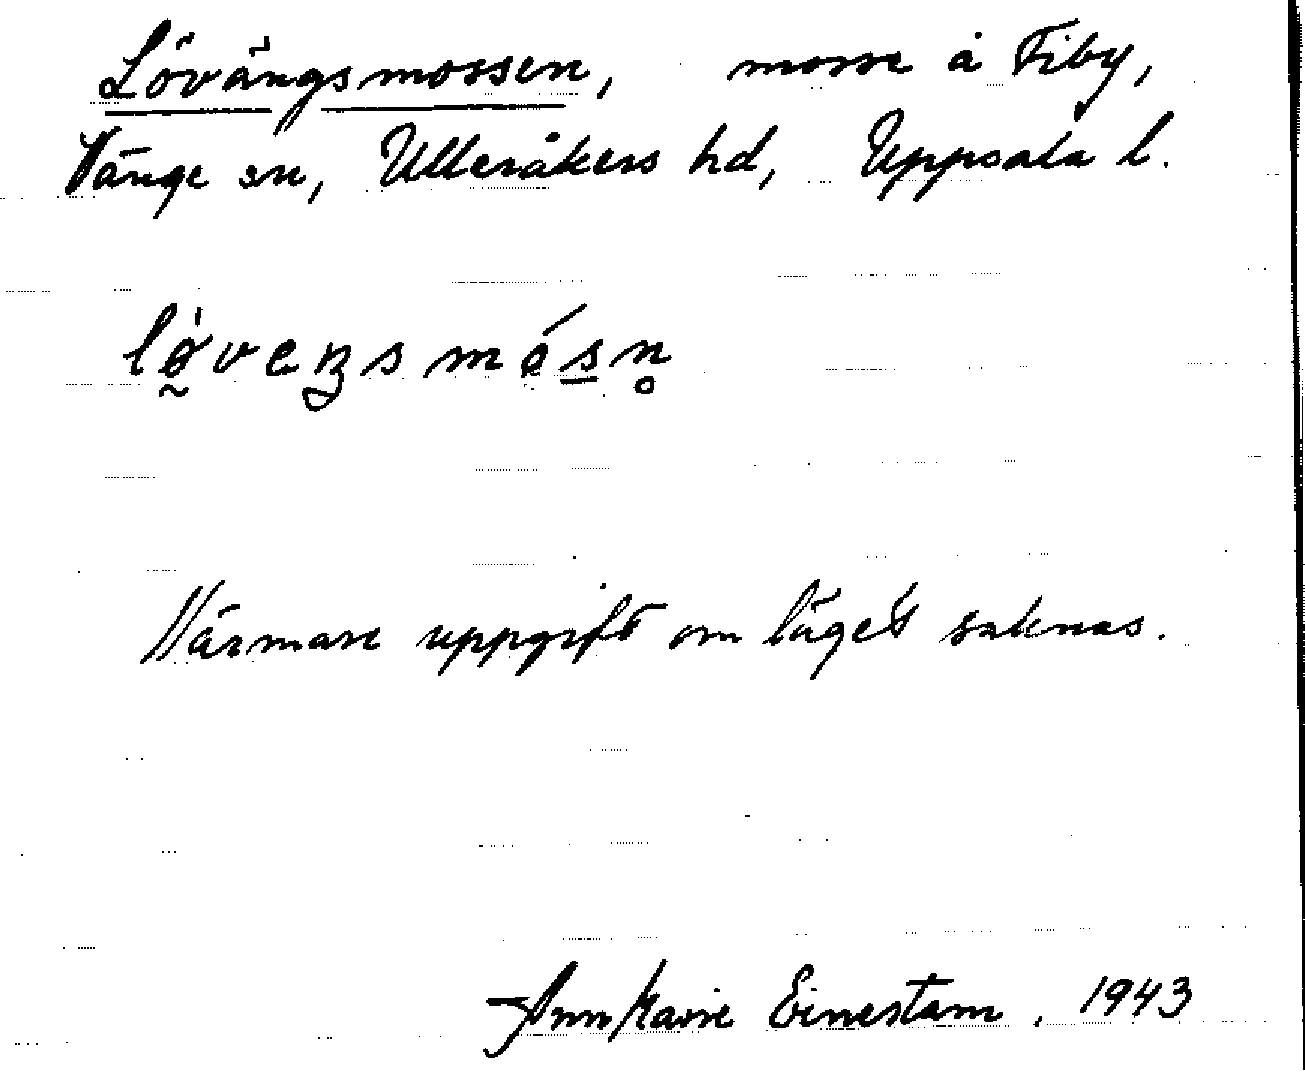 Lövängsmossen, mosse å Fiby,
Vänge sn, Ulleråkers hd, Uppsala l.
lø̰̀veŋsmósn̥
Närmare uppgift om läget saknas.
Ann Marie Einestam, 1943